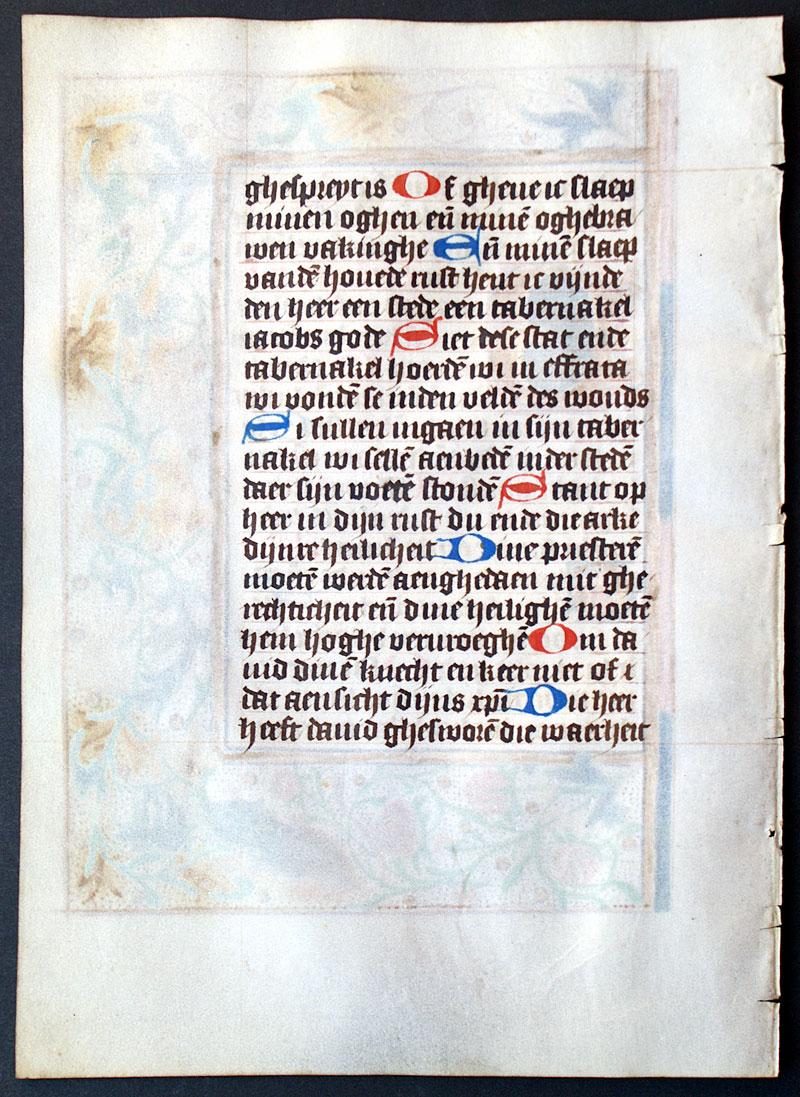 ghespreyt is Of gheue ic slaep
minen oghen eñ minē oghebra
wen vakinghe Eñ minē slaep
vandē houede rust hent ic vijnde
den heer een stede een tabernakel
iacobs gode Siet dese stat ende
tabernakel hoerdē wi in effrata
wi vondē se inden veldē des wouds
Wi sullen ingaen in sijn taber
nakel wi sellē aenbedē inder stedē
daer sijn voetē stondē Stant op
heer in dijn rust du ende die arke
dijnre heilicheit Dine priesterē
moetē werdē aenghedaen mit ghe
rechticheit eñ dine heilighē moetē
hem hoghe vervroeghē Om da
uid dinē knecht en keer niet of
dat aensicht dijns xpi Die heer
heeft dauid ghesworē die waerheit